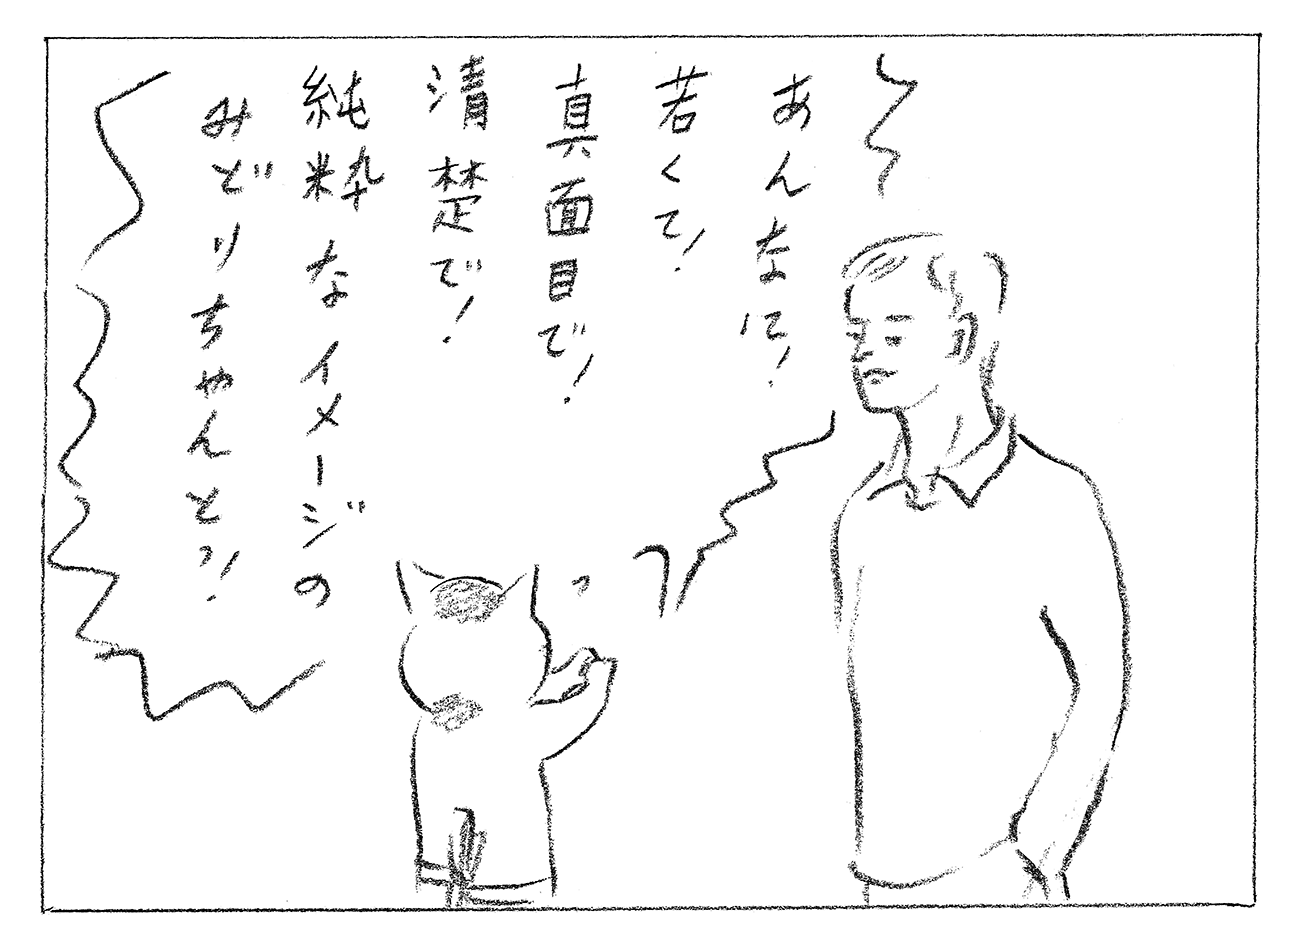 あんなに！
若くて！
真面目で！
清楚で！
純粋なイメージの
みどりちゃんと？！